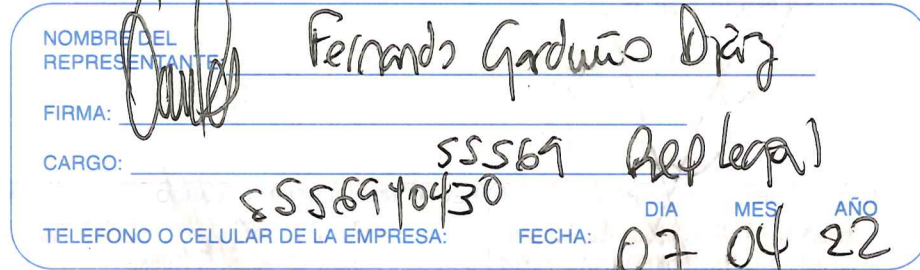 NOMBRE DEL
REPRESENTANTE Fernando Garduño Díaz
FIRMA:
CARGO: 55569 Rep legal
5556940430
DIA MES AÑO
TELEFONO O CELULAR DE LA EMPRESA: FECHA: 07 04 22